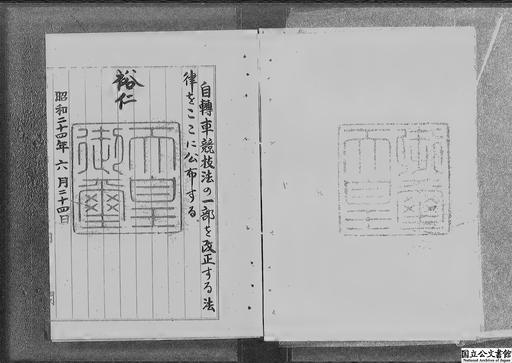 自轉車競技法の一部を改正する法
律をここに公布する
裕仁
天皇
御璽
昭和二十四年六月二十四日
国立公文書館
National Archives of Japan